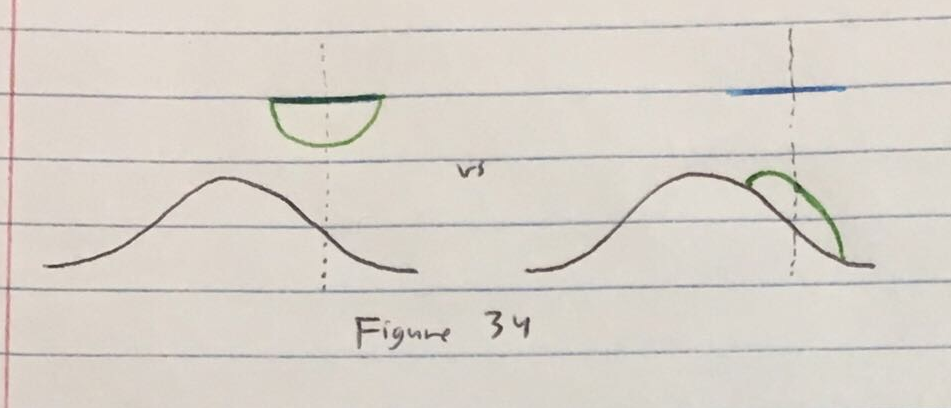 vs
Figure 34